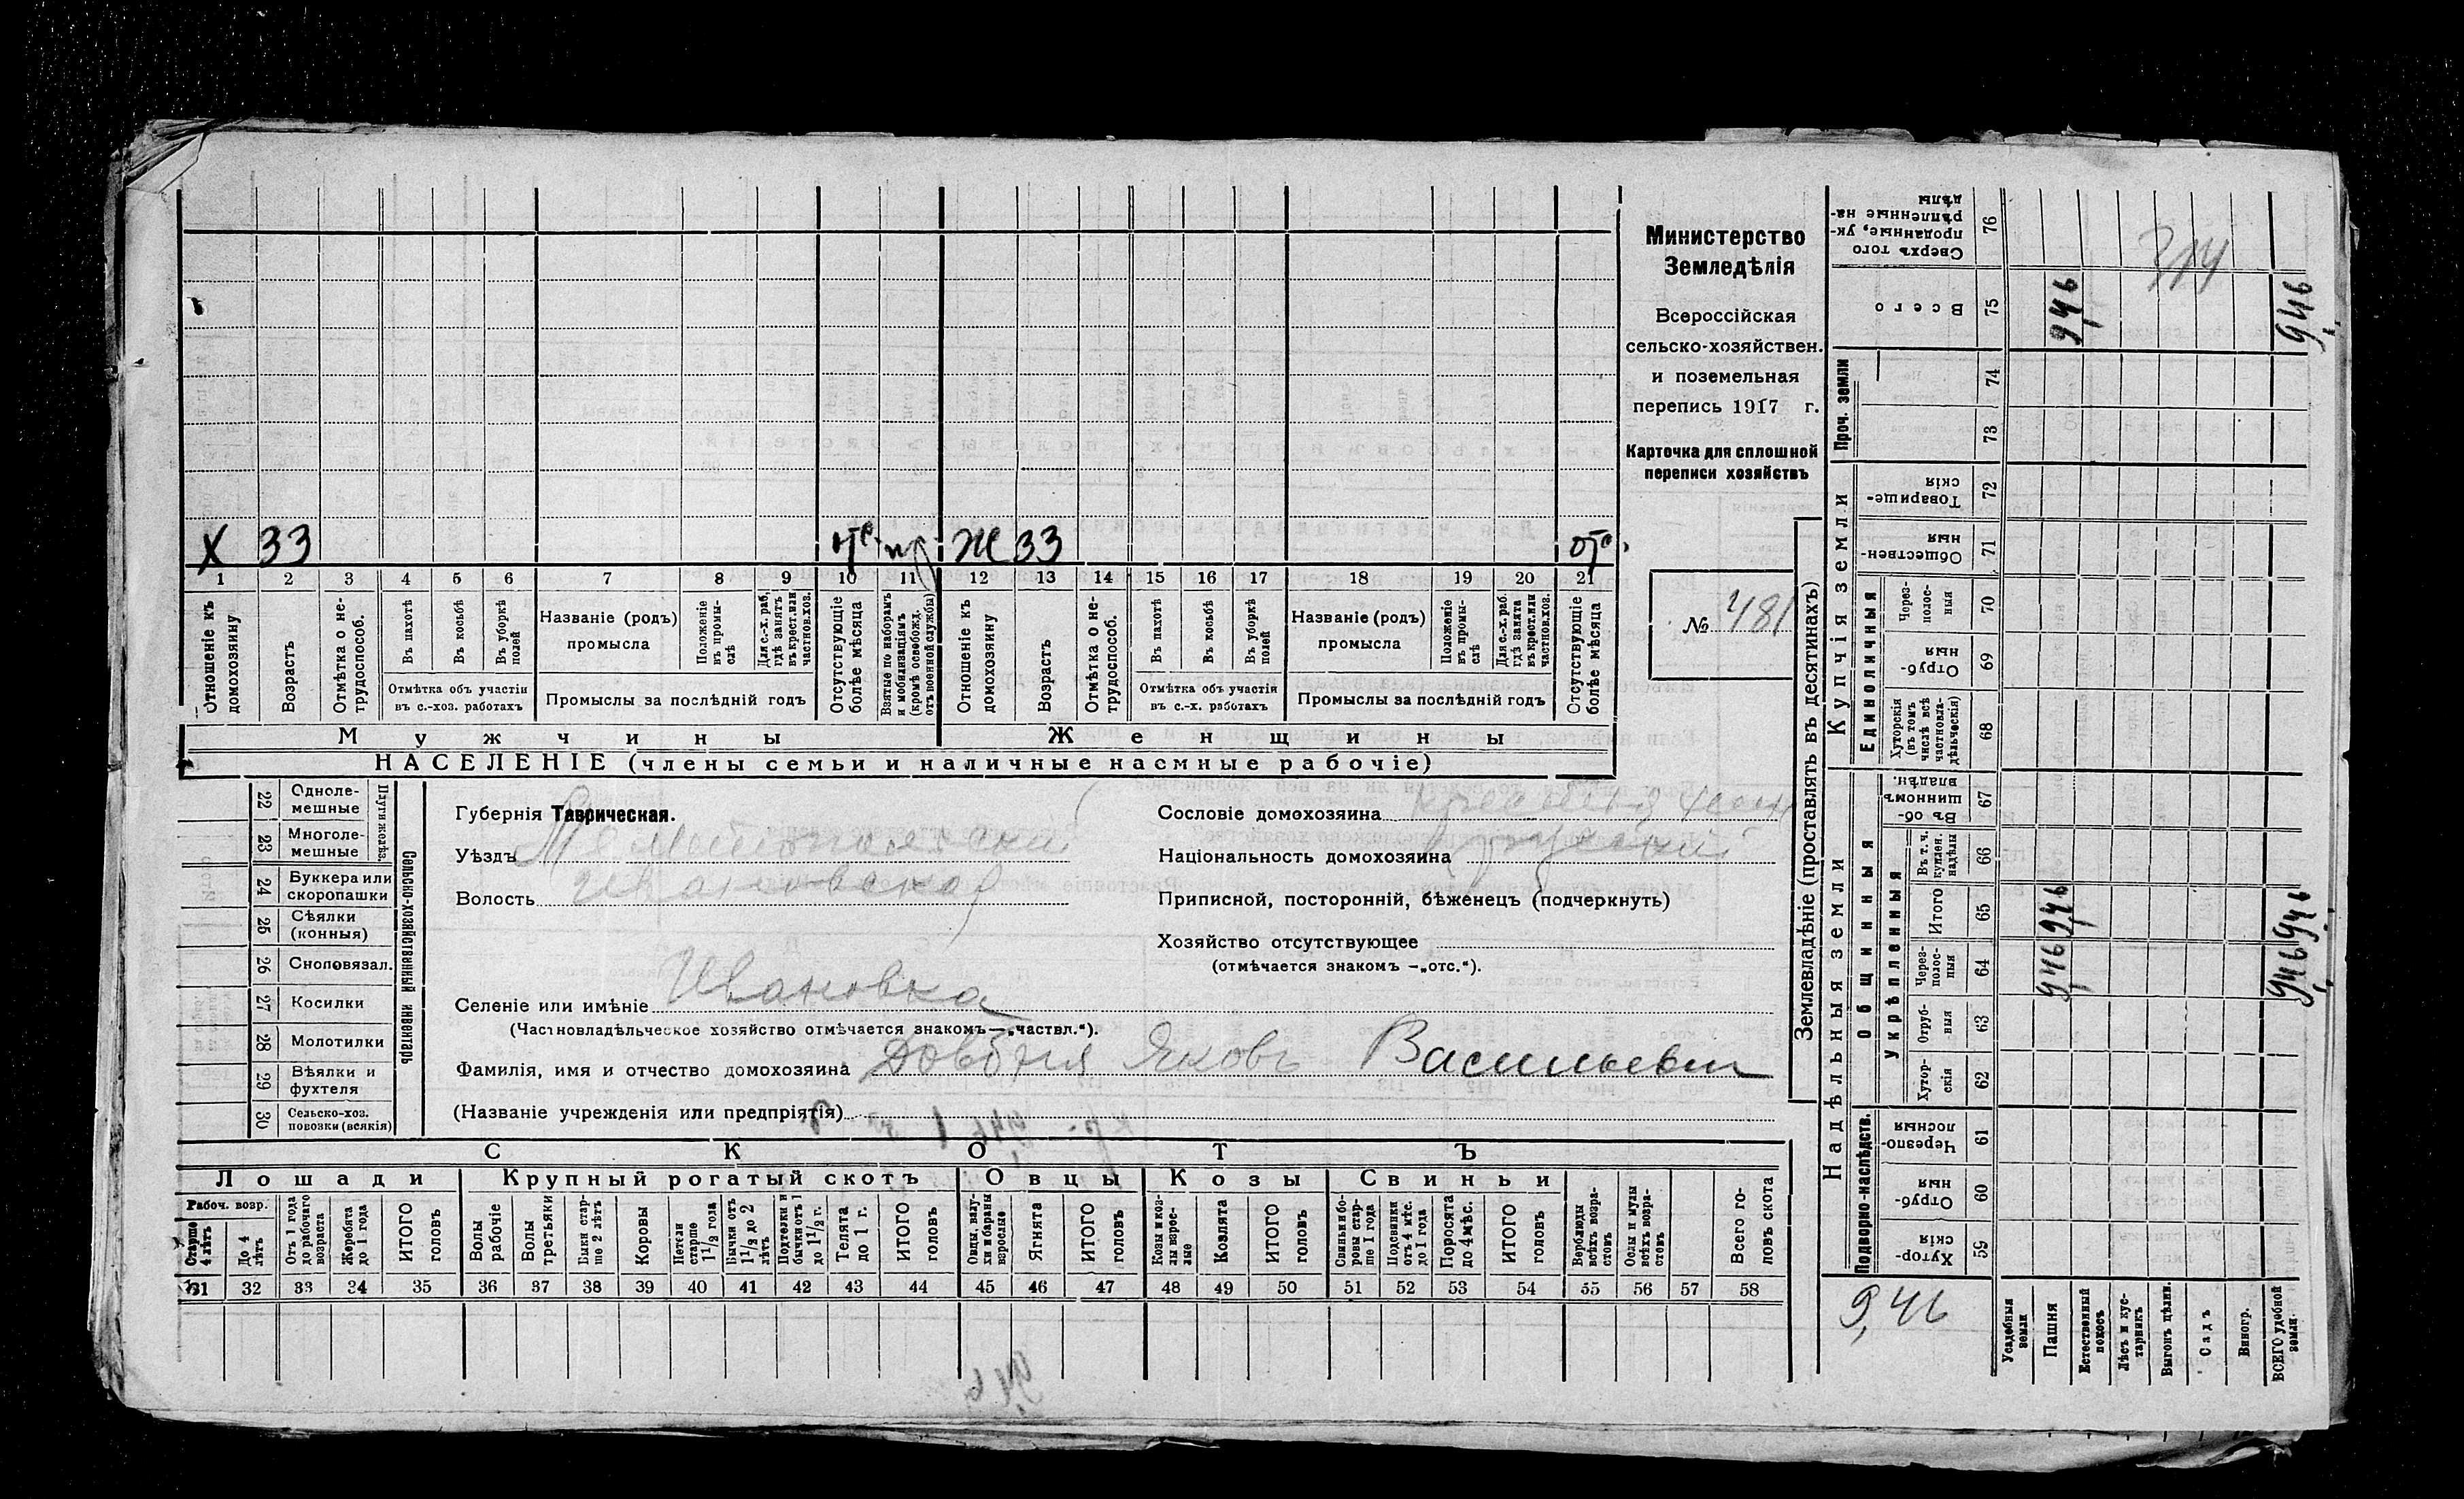 Х 33 отс. Ж 33 отс.
1 2 3 4 5 6 7 8 9 10 11 12 13 14 15 16 17 18 19 20 21
Отношеніе къ домохозяину
Возрастъ
Отмѣтка о нетрудоспособ.
Въ пахотѣ
Въ косьбѣ
Въ уборкѣ полей
Отмѣтка объ участіи
въ с.-хоз. работахъ
Названіе (родъ)
промысла
Положеніе въ промыслѣ
Для с.-х. раб. гдѣ занятъ въ крест. или частнов. хоз.
Промыслы за послѣдній годъ
Отсутствующіе болѣе мѣсяца
Взятые по наборамъ и мобилизаціямъ (кромѣ освобожд. отъ военной службы)
Отношеніе къ домохозяину
Возрастъ
Отмѣтка о нетрудоспособ.
Въ пахотѣ
Въ косьбѣ
Въ уборкѣ полей
Отмѣтка объ участіи
въ с.-х. работахъ
Названіе (родъ)
промысла
Положеніе въ промыслѣ
Для с.-х. раб. гдѣ занята въ крест. или частнов. хоз.
Промыслы за послѣдній годъ
Отсутствующіе болѣе мѣсяца
Мужчины Женщины
НАСЕЛЕНІЕ (члены семьи и наличные наемные рабочіе)
Министерство
Земледѣлія
Всероссійская
сельско-хозяйствен.
и поземельная
перепись 1917 г.
Карточка для сплошной
переписи хозяйствъ
№ 481
22 Одноле-
мешные
23 Многоле-
мешные
Плуги желѣз.
24 Буккера или
скоропашки
25 Сѣялки
(конныя)
26 Сноповязал.
27 Косилки
28 Молотилки
29 Вѣялки и
фухтеля
30 Сельско-хоз.
повозки (всякія)
Сельско-хозяйственный инвентарь
Губернія Таврическая.
Уѣздъ Мелитопольский
Волость Ивановская
Селеніе или имѣніе Ивановка
(Частновладѣльческое хозяйство отмѣчается знакомъ—„частвл.“).
Фамилія, имя и отчество домохозяина Довбня Яковъ Васильевич
(Названіе учрежденія или предпріятія)
Сословіе домохозяина
Національность домохозяина
Приписной, посторонній, бѣженецъ (подчеркнуть)
Хозяйство отсутствующее
(отмѣчается знакомъ —„отс.“).
СКОТЪ
Лошади Крупный рогатый скотъ Овцы Козы Свиньи
Рабоч. возр.
Старше 4 лѣтъ
До 4 лѣтъ
Отъ 1 года до рабочаго возраста
Жеребята до 1 года
ИТОГО головъ
Волы рабочіе
Волы третьяки
Быки старше 2 лѣтъ
Коровы
Нетели старше 1½ года
Бычки отъ 1½ до 2 лѣтъ
Подтелки и бычки отъ 1 до 1½ г.
Телята до 1 г.
ИТОГО головъ
Овцы, валухи и бараны взрослые
Ягнята
ИТОГО головъ
Козы и козлы взрослые
Козлята
ИТОГО головъ
Свиньи и боровы старше 1 года
Подсвинки отъ 4 мѣс. до 1 года
Поросята до 4 мѣс.
ИТОГО головъ
Верблюды всѣхъ возрастовъ
Ослы и мулы всѣхъ возрастовъ
Всего головъ скота
31 32 33 34 35 36 37 38 39 40 41 42 43 44 45 46 47 48 49 50 51 52 53 54 55 56 57 58
Землевладѣніе (проставлять въ десятинахъ)
Купчія земли
Надѣльныя земли
Сверхъ того проданные, укрѣпленные надѣлы 76
314
Всего 75 9,46 9,46
Проч. земли
74
73
Товарищескія 72
Общественныя 71
Единоличныя
Черезполосныя 70
Отрубныя 69
Хуторскія (въ томъ числѣ всѣ частновладѣльческія) 68
Общинныя
Въ общинномъ владѣн. 67
Укрѣпленныя
Въ т. ч. куплен. надѣлы 66
Итого 65 9,46 9,46
Черезполосныя 64 9,46 9,46
Отрубныя 63
Хуторскія 62
Подворно-наслѣдств.
Черезполосныя 61
Отрубныя 60
Хуторскія 59
9,46
Усадебныя земли
Пашня
Естественный покосъ
Лѣсъ и кустарникъ
Выгонъ цѣлин.
Садъ
Виногр.
ВСЕГО удобной земли.